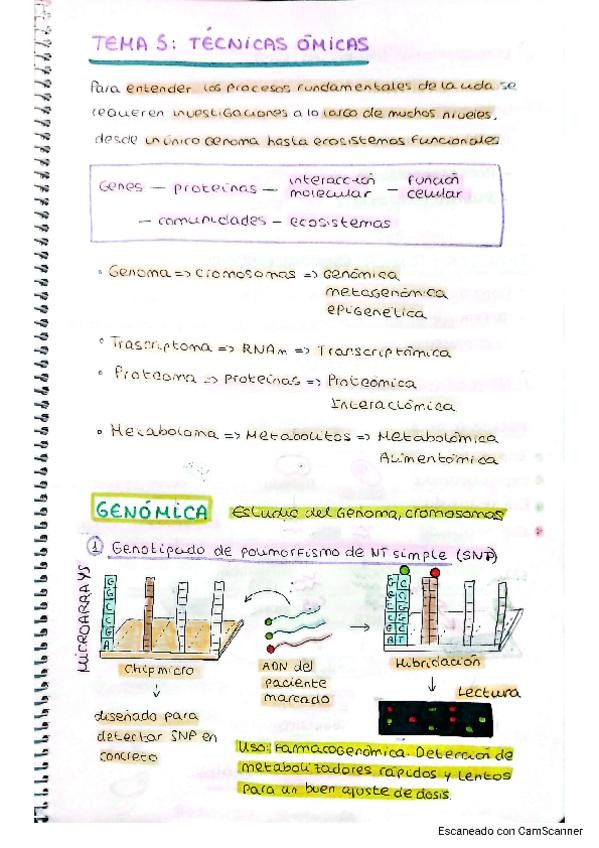 TEMA 5: TÉCNICAS ÓMICAS
Para entender los procesos fundamentales de la vida se
requieren investigaciones a lo largo de muchos niveles,
desde un único genoma hasta ecosistemas funcionales
Genes — proteínas — interacción molecular — función celular
— comunidades — ecosistemas
• Genoma => cromosomas => Genómica
metagenómica
epigenética
• Trascriptoma => RNAm => Transcriptómica
• Proteoma => Proteínas => Proteómica
Interactómica
• Metaboloma => Metabolitos => Metabolómica
Alimentómica
GENÓMICA Estudio del Genoma, cromosomas
① Genotipado de polimorfismo de NT simple (SNP)
MICROARRAYS
Chip micro
↓
diseñado para
detectar SNP en
concreto
ADN del
paciente
marcado
Hibridación
↓ Lectura
Uso: Farmacogenómica. Detección de
metabolizadores rápidos y lentos
para un buen ajuste de dosis.
Escaneado con CamScanner